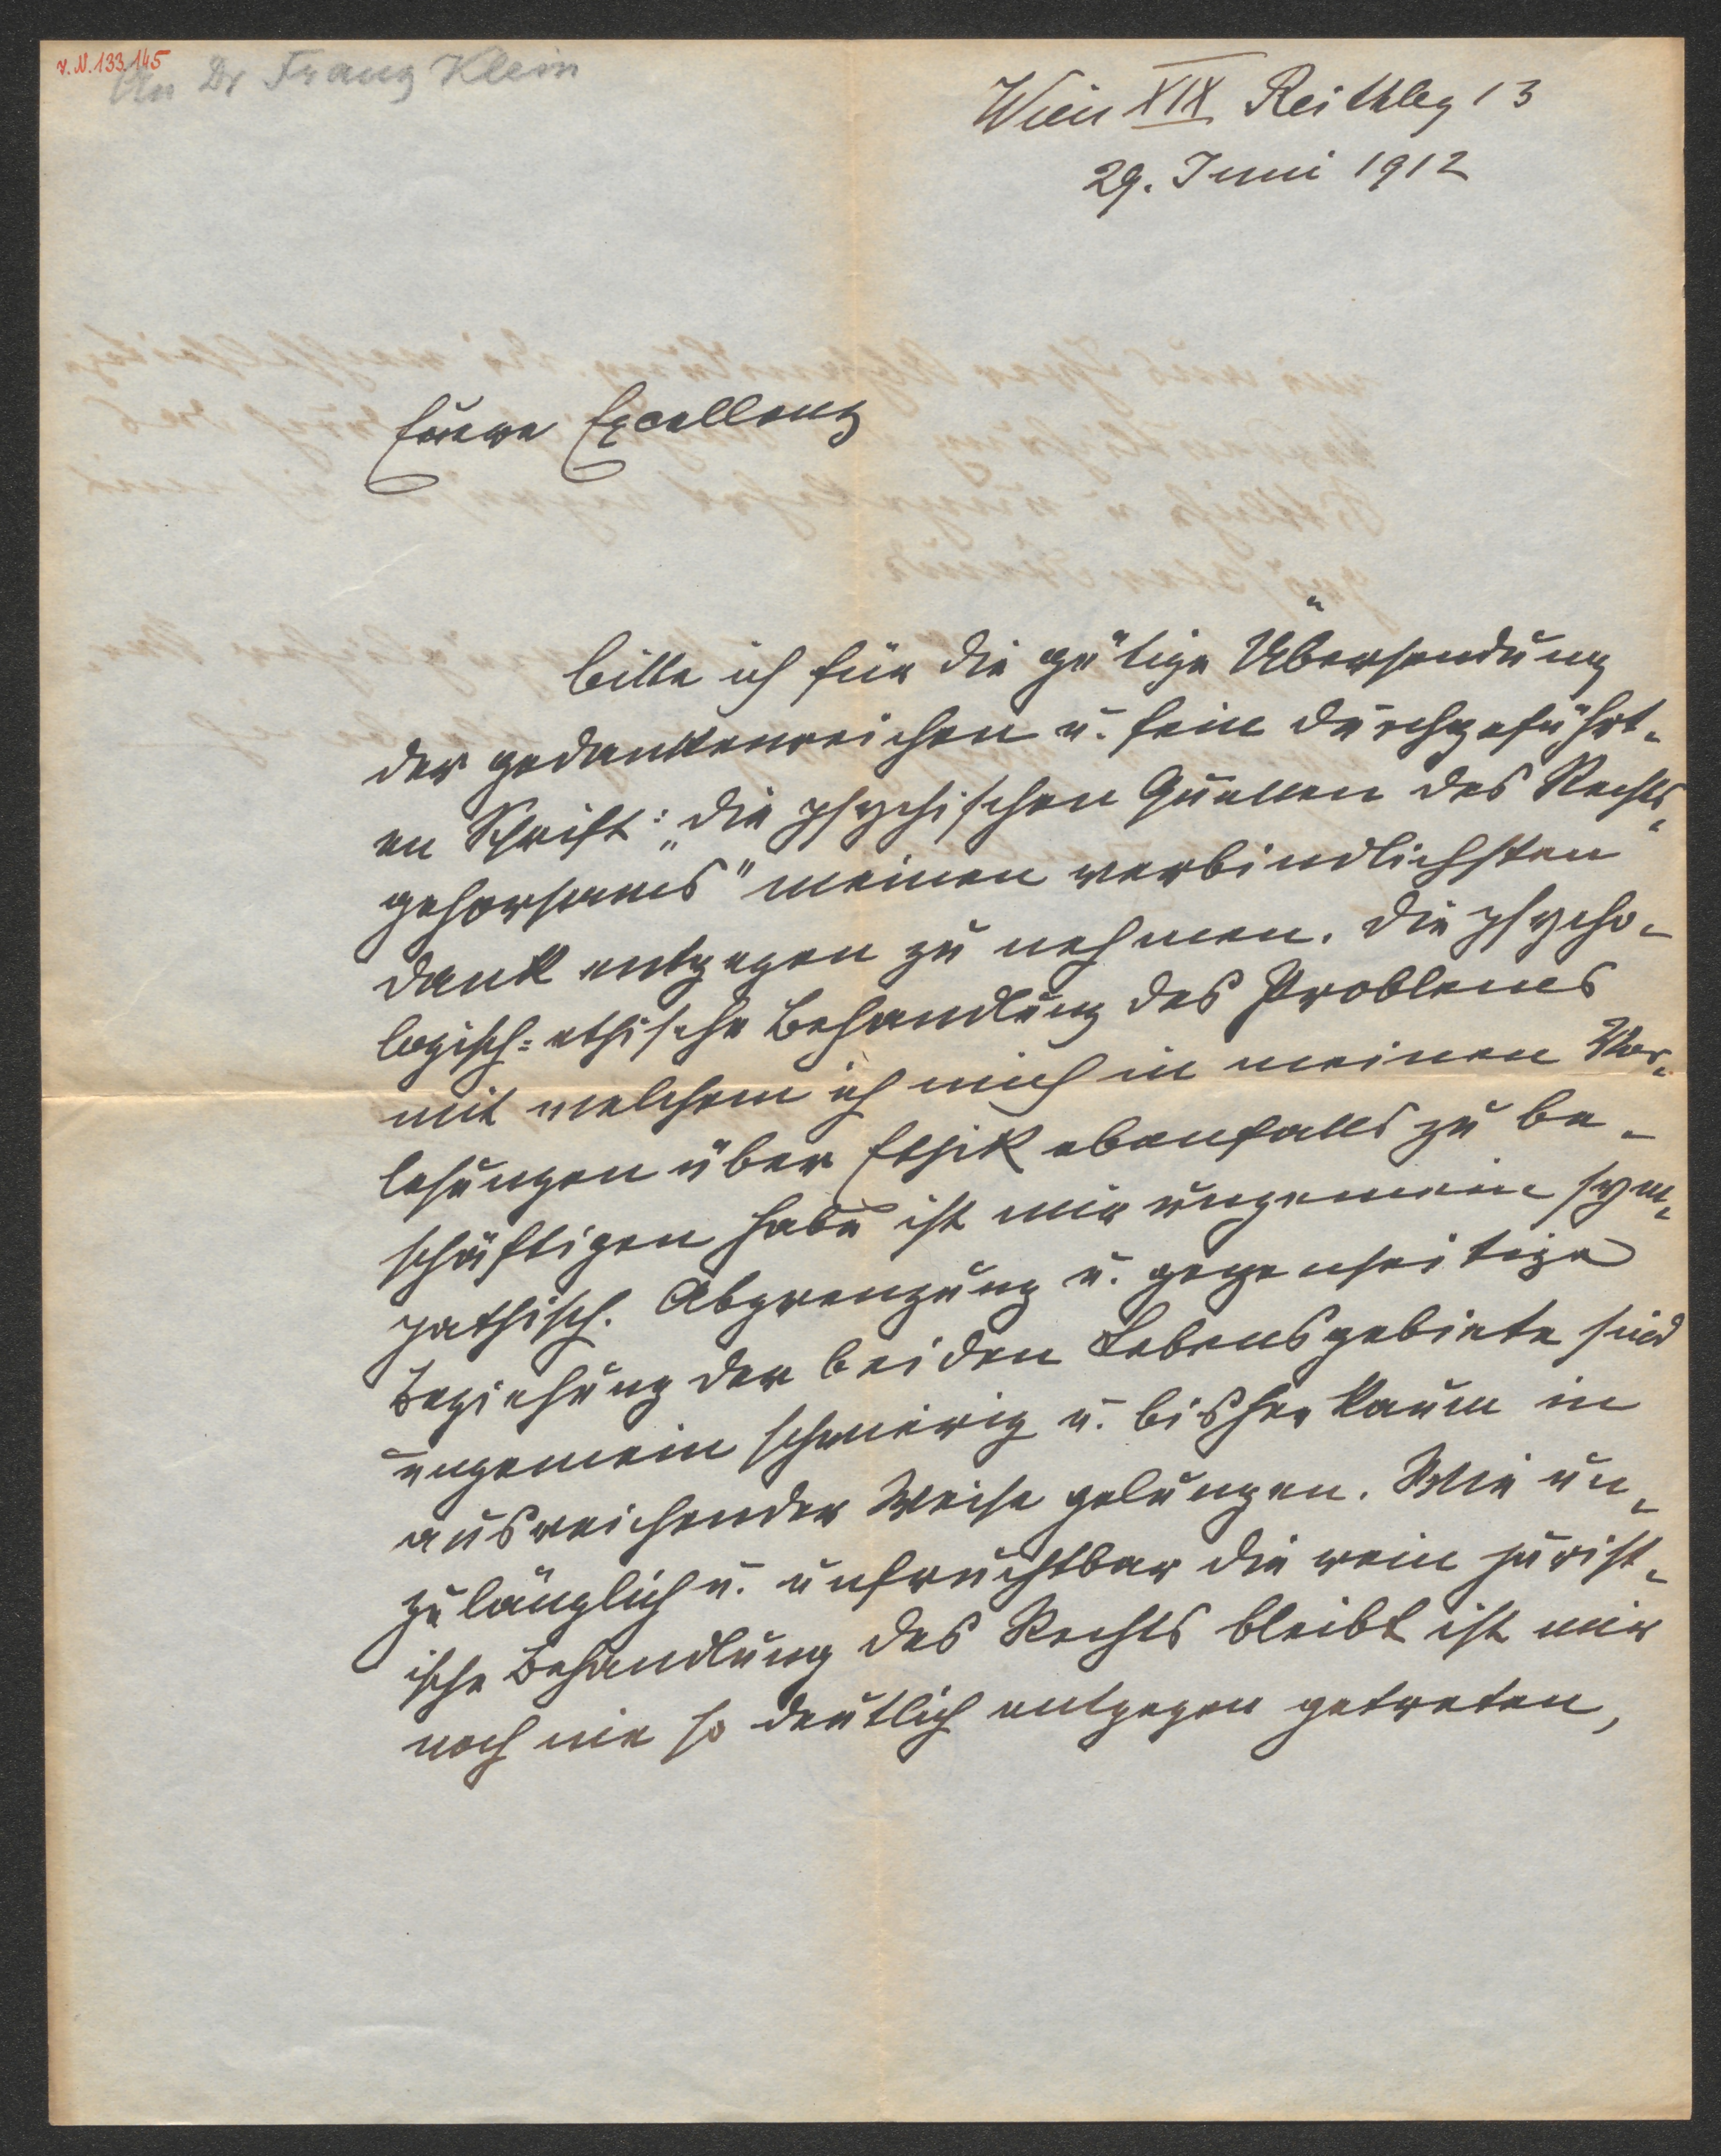 v. N. 133.145
An Dr Franz Klein
Wien XIX Reithleg 13
29. Juni 1912
Euere Excellenz
bitte ich für die gütige Übersendung
der gedankenreichen u. fein durchgeführt-
en Schrift: „die psychischen Quellen des Rechts-
gehorsams" meinen verbindlichsten
Dank entgegen zu nehmen. Die psycho-
logisch-ethische Behandlung des Problems
mit welchem ich mich in meinen Vor-
lesungen über Ethik ebenfalls zu be-
schäftigen habe ist mir ungemein sym-
pathisch. Abgrenzung u. gegenseitige
Beziehung der beiden Lebensgebiete sind
ungemein schwierig u. bisher kaum in
ausreichender Weise gelungen. Wie un-
zulänglich u. unfruchtbar die rein jurist-
ische Behandlung des Rechts bleibt ist mir
noch nie so deutlich entgegen getreten,